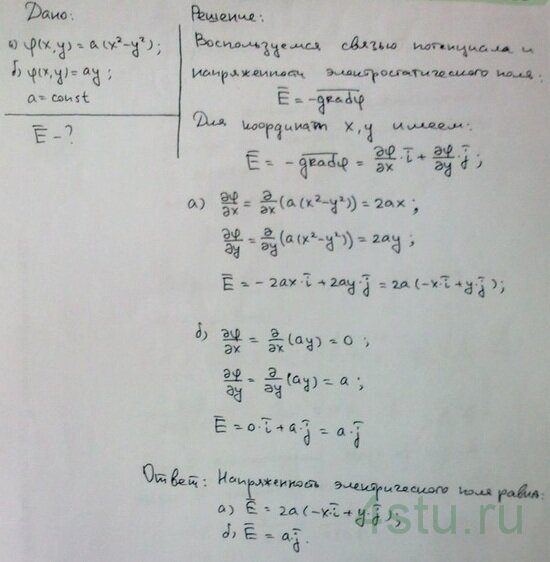 Дано:
а) φ(x,y) = a(x²-y²);
б) φ(x,y) = ay;
a = const
Ē - ?
Решение:
Воспользуемся связью потенциала и
напряженности электростатического поля:
Ē = -gradφ
Для координат x, y имеем:
Ē = -gradφ = ∂φ/∂x · ī + ∂φ/∂y · j̄ ;
а) ∂φ/∂x = ∂/∂x (a(x²-y²)) = 2ax ;
∂φ/∂y = ∂/∂y (a(x²-y²)) = 2ay ;
Ē = -2ax · ī + 2ay · j̄ = 2a(-x · ī + y · j̄) ;
б) ∂φ/∂x = ∂/∂x (ay) = 0 ;
∂φ/∂y = ∂/∂y (ay) = a ;
Ē = 0 · ī + a · j̄ = a · j̄
Ответ: Напряженность электрического поля равна:
а) Ē = 2a(-x · ī + y · j̄) ;
б) Ē = a j̄.
4stu.ru